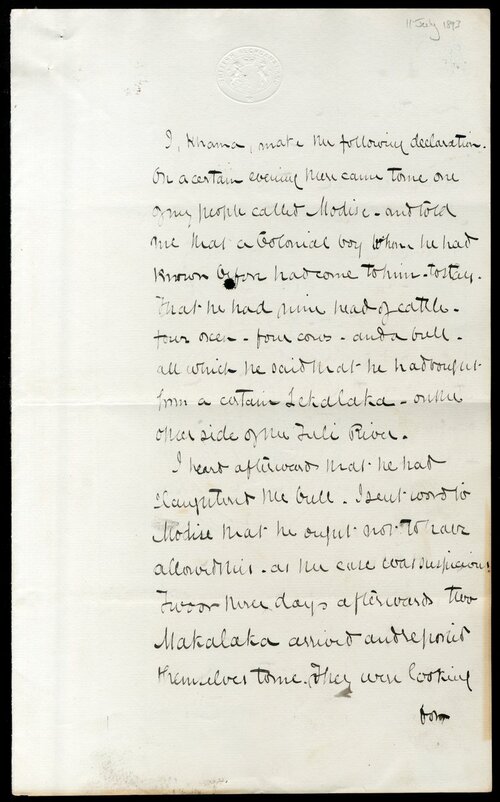 11 July 1893
I, Khama, make the following declaration.
On a certain evening there came to me one
of my people called Modise - and told
me that a Colonial boy whom he had
known before had come to him - to stay.
That he had nine head of cattle -
four oxen - four cows - and a bull -
all which he said that he had bought
from a certain Lekalaka - on the
other side of the Tuli River.
I heard afterwards that he had
slaughtered the bull. I sent word to
Modise that he ought not to have
allowed this - as the case was suspicious
Two or three days afterwards two
Makalaka arrived and reported
themselves to me. They were looking